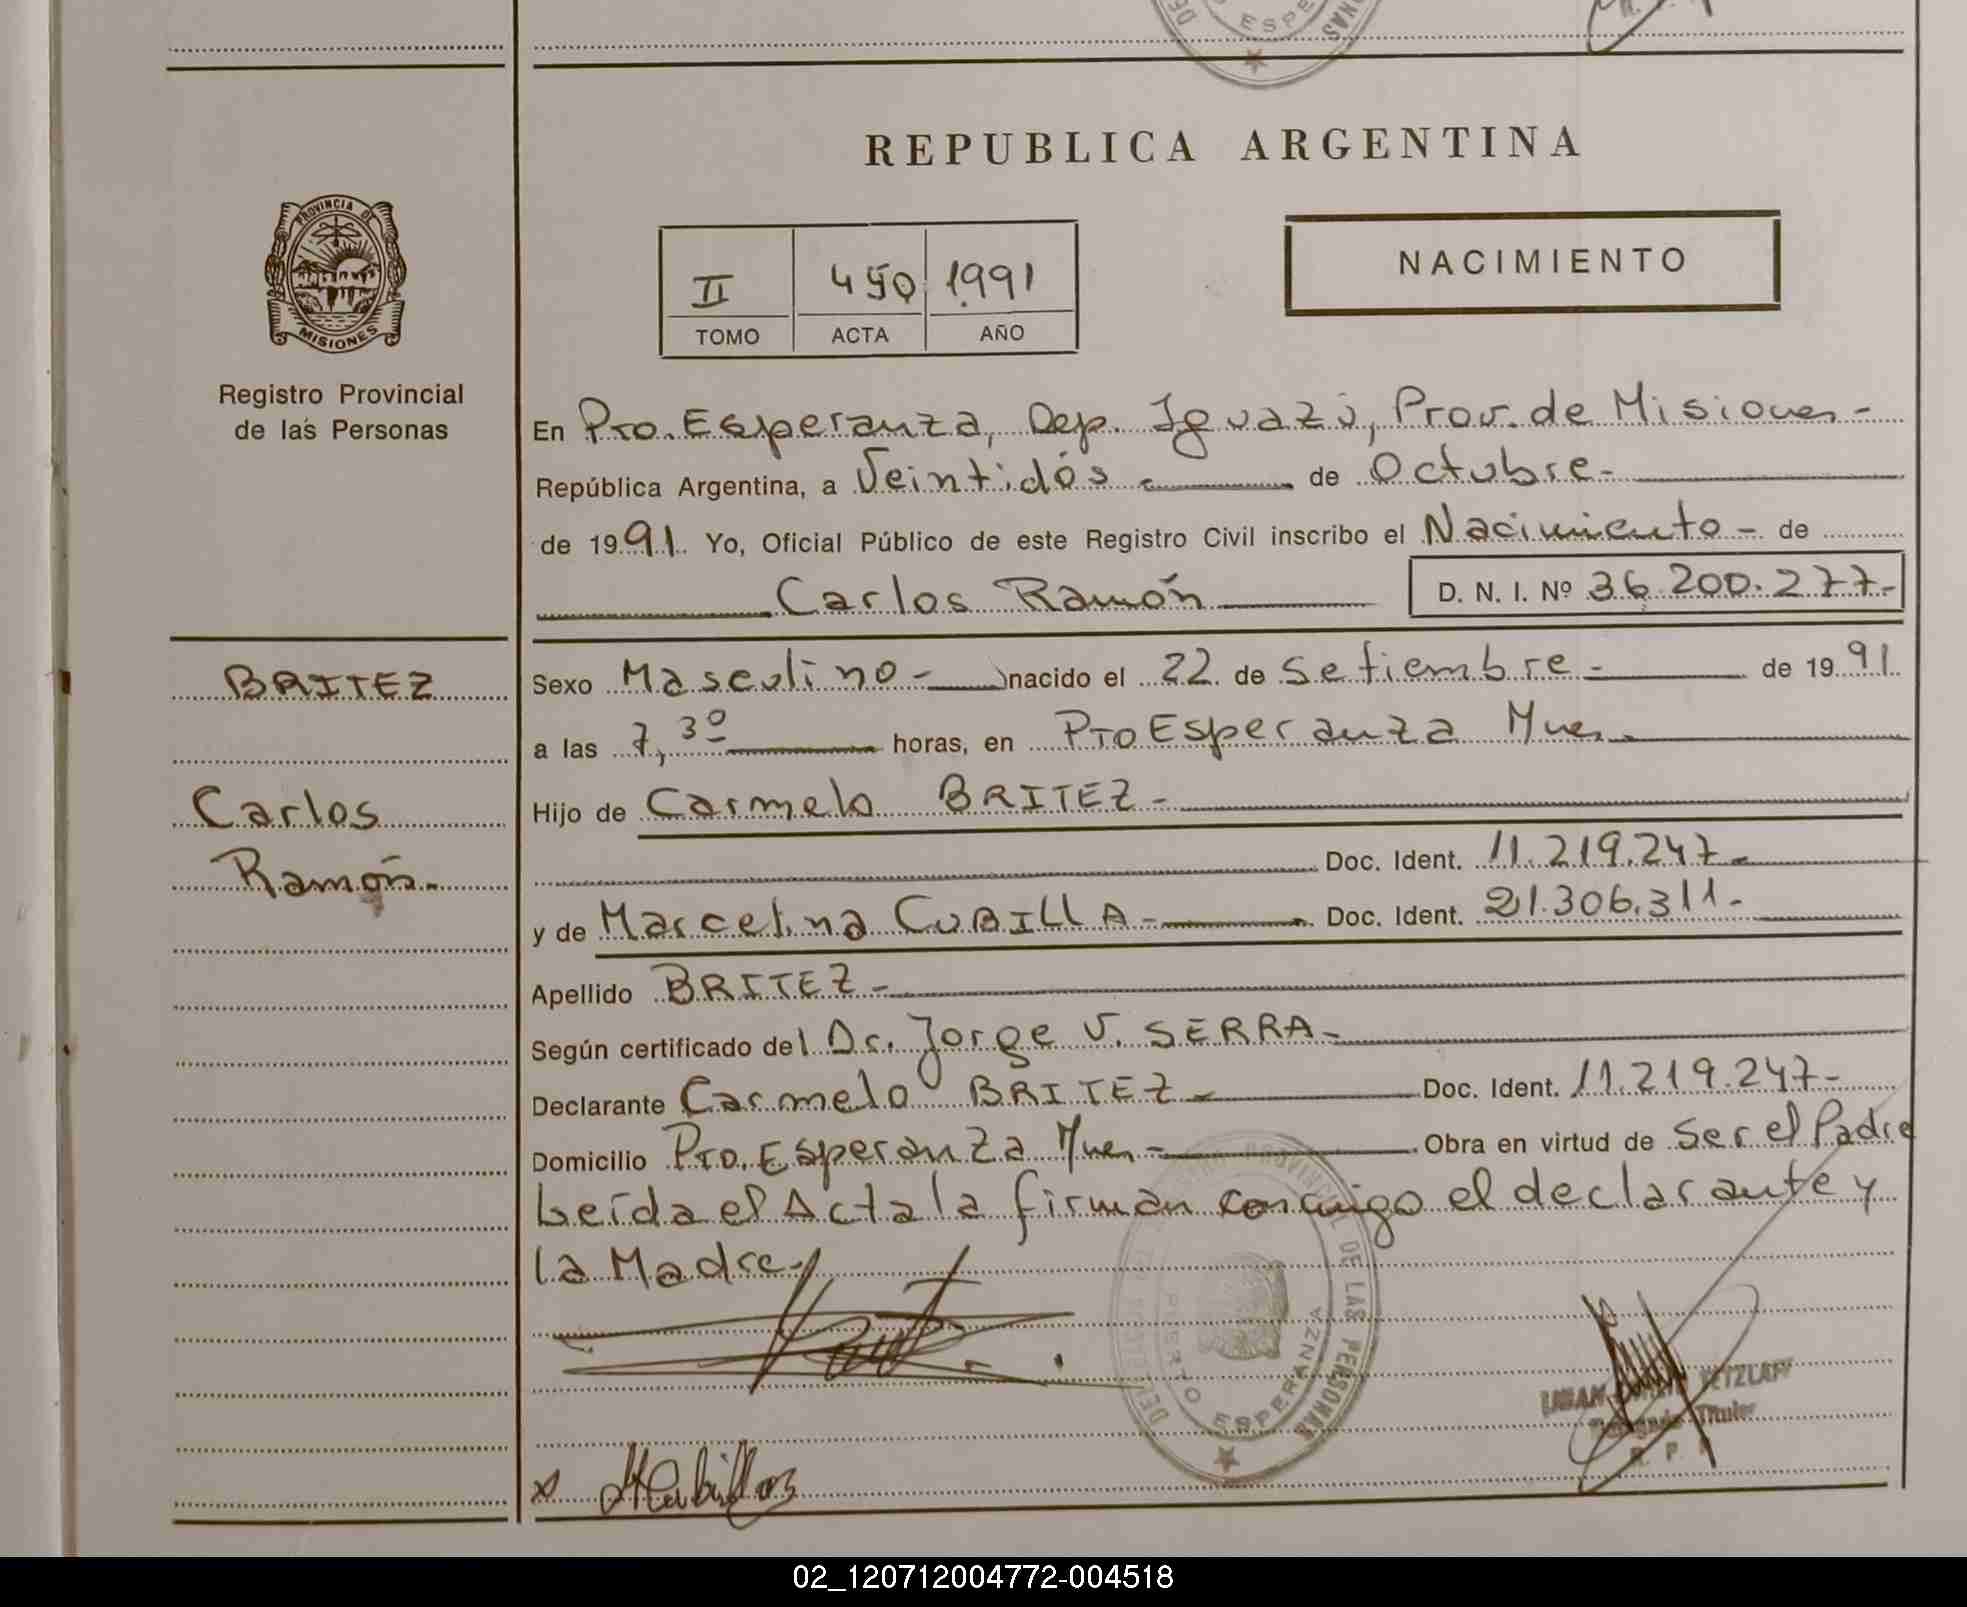 REPUBLICA ARGENTINA
PROVINCIA DE
MISIONES
Registro Provincial
de las Personas
II 450 1991
TOMO ACTA AÑO
NACIMIENTO
En Pto. Esperanza, Dep. Iguazú, Prov. de Misiones-
República Argentina, a Veintidós de Octubre-
de 1991. Yo, Oficial Público de este Registro Civil inscribo el Nacimiento- de
Carlos Ramón D. N. I. Nº 36.200.277-
BRITEZ
Carlos
Ramón-
Sexo Masculino- nacido el 22 de Setiembre- de 1991.
a las 7,30 horas, en Pto Esperanza Mnes
Hijo de Carmelo BRITEZ-
Doc. Ident. 11.219.247-
y de Marcelina CUBILLA- Doc. Ident. 21.306.311-
Apellido BRITEZ-
Según certificado del Dr. Jorge V. SERRA-
Declarante Carmelo BRITEZ- Doc. Ident. 11.219.247-
Domicilio Pto. Esperanza Mnes- Obra en virtud de Ser el Padre
Leída el Acta la firman conmigo el declarante y
la Madre-
PROVINCIAL DE LAS PERSONAS
PUERTO ESPERANZA
Titular
R. P. P.
x
02_120712004772-004518